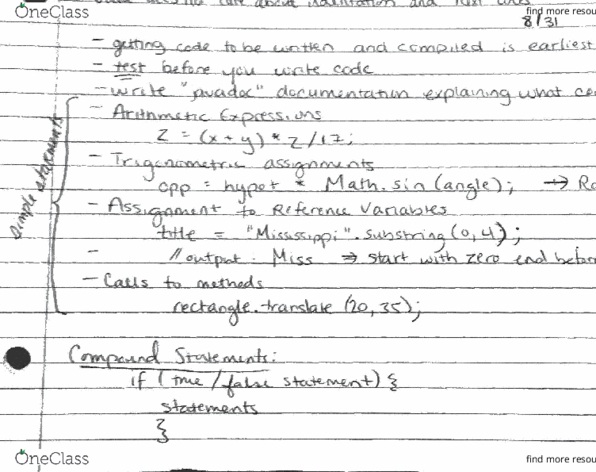 OneClass
find more resou
8/31
- getting code to be written and compiled is earliest
- test before you write code
- write "javadoc" documentation explaining what co
simple statements
- Arithmetic Expressions
z = (x + y) * z / 17;
- Trigonometric assignments
opp = hypot * Math.sin (angle); → Ra
- Assignment to Reference Variables
title = "Mississippi".substring (0, 4);
- // output: Miss ⇒ start with zero end before
- Calls to methods
rectangle.translate (20, 35);
Compound Statements:
if (true / false statement) {
statements
}
OneClass
find more resou